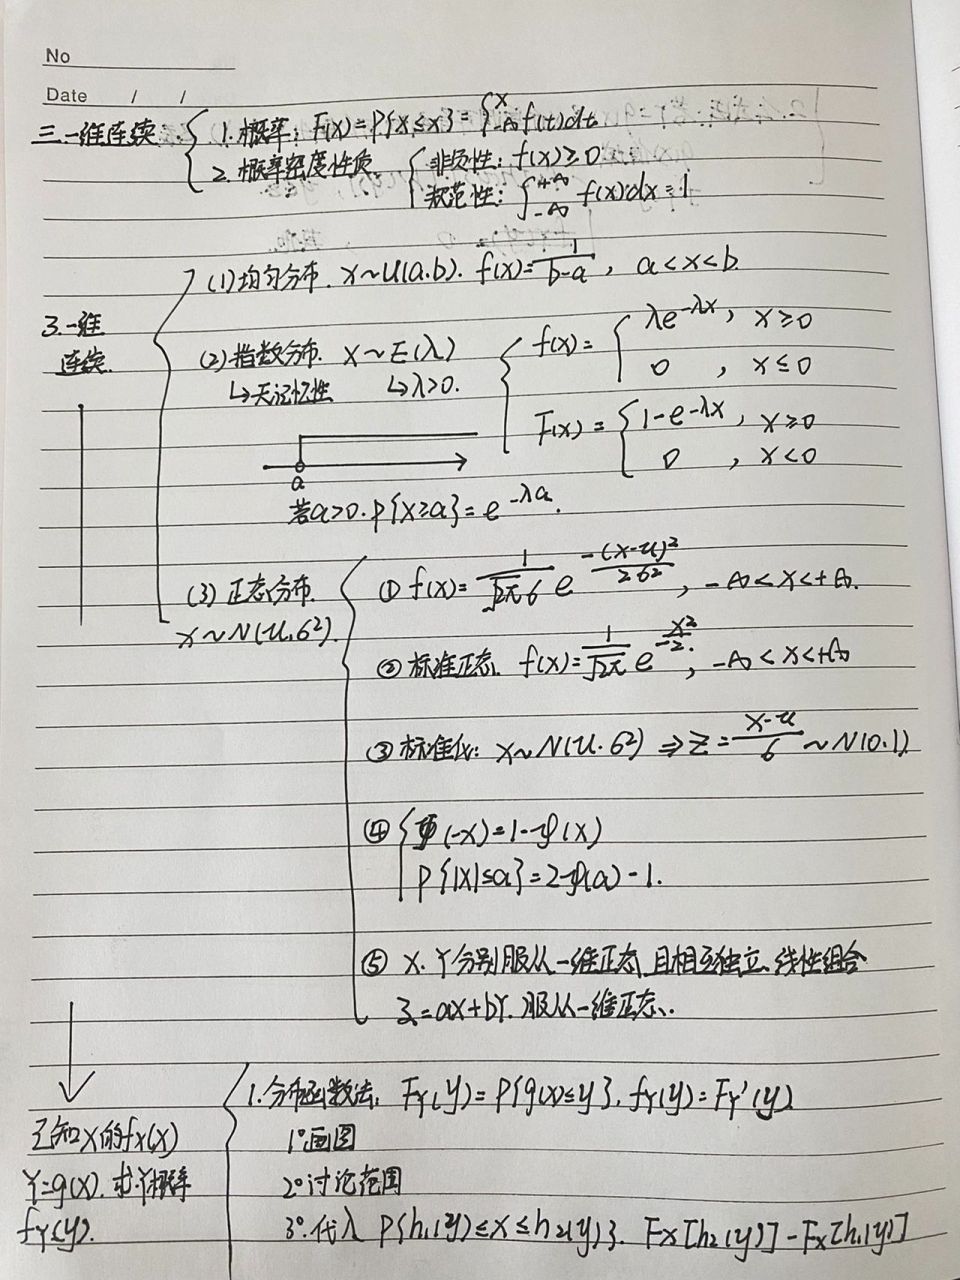 No
Date / /
三.一维连续. 1. 概率: F(x)=P{X≤x}=∫_{-∞}^{x} f(t)dt
2. 概率密度性质. 非负性: f(x)≥0
规范性: ∫_{-∞}^{+∞} f(x)dx=1
3.一维连续.
(1)均匀分布. X~U(a.b). f(x)=1/(b-a), a<x<b.
(2)指数分布. X~E(λ) f(x)= { λe^{-λx}, x≥0
0 , x≤0
↳无记忆性 ↳λ>0.
F(x)= { 1-e^{-λx}, x≥0
0 , x<0
a
若a>0. P{X≥a}=e^{-λa}.
(3) 正态分布. ① f(x)=1/(√2π σ) e^{-(x-u)²/2σ²}, -∞<x<+∞.
X~N(u.σ²).
② 标准正态. f(x)=1/√2π e^{x²/-2.}, -∞<x<+∞
③ 标准化: X~N(u.σ²) ⇒ Z=(X-u)/σ ~N(0.1)
④ Φ(-x)=1-φ(x)
P{|X|≤a}=2φ(a)-1.
⑤ X. Y分别服从一维正态,且相互独立.线性组合
Z=aX+bY.服从一维正态.
已知X的fx(x)
Y=g(x).求Y概率
fY(y).
1.分布函数法. FY(y)=P{g(x)≤y}. fY(y)=FY'(y)
1°画图
2°讨论范围
3°.代入 P{h₁(y)≤X≤h₂(y)}. Fx[h₂(y)]-Fx[h₁(y)]